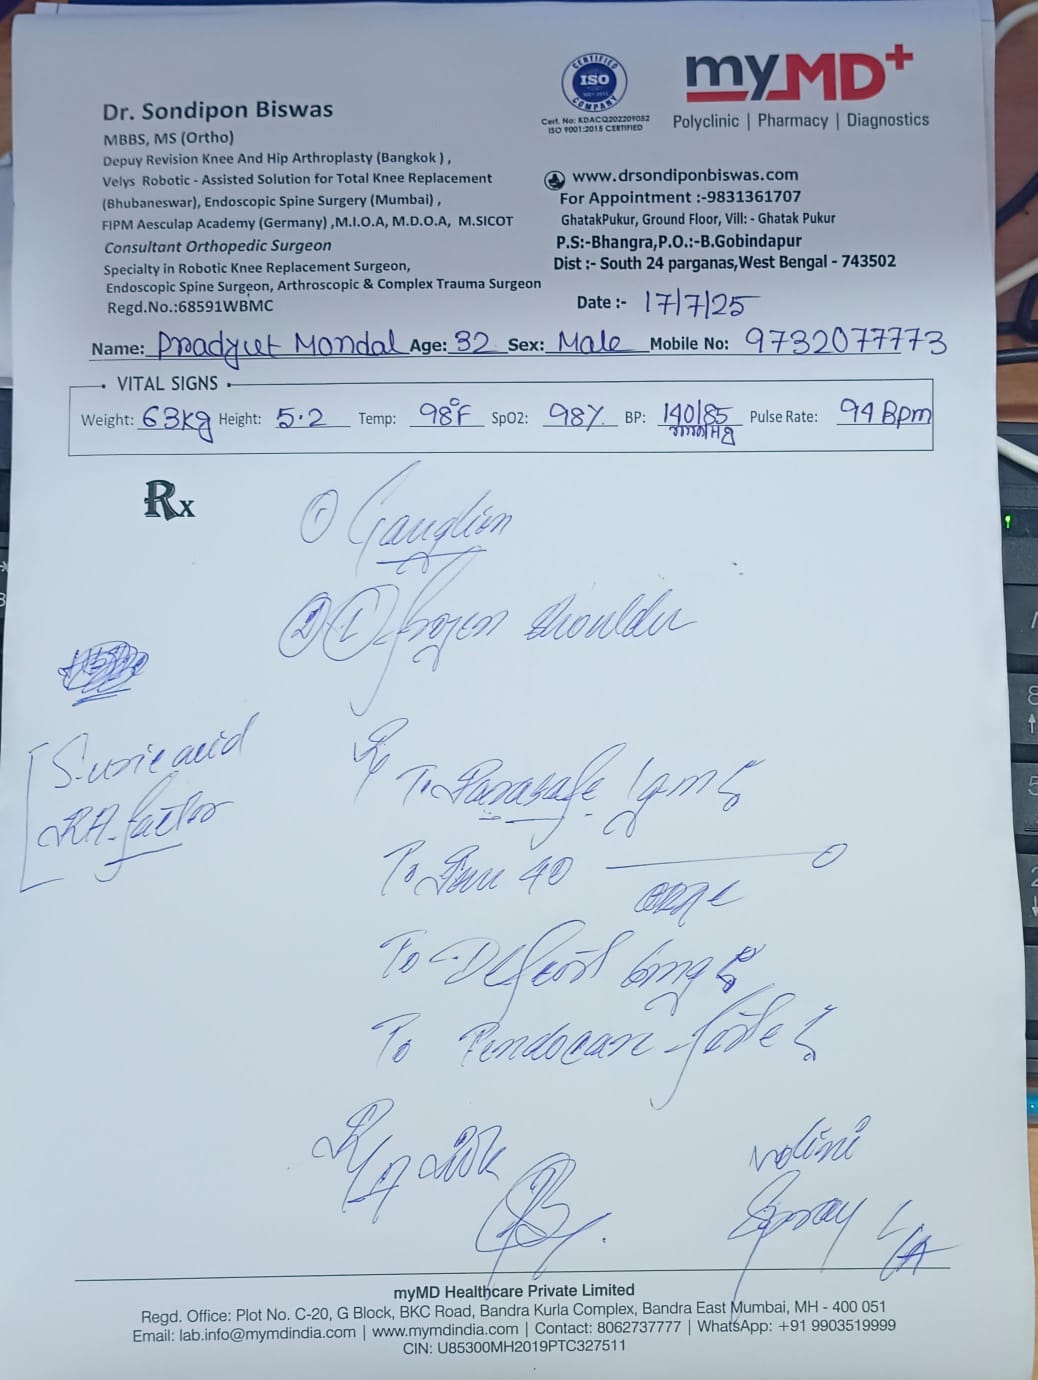 Dr. Sondipon Biswas
MBBS, MS (Ortho)
Depuy Revision Knee And Hip Arthroplasty (Bangkok ),
Velys Robotic - Assisted Solution for Total Knee Replacement
(Bhubaneswar), Endoscopic Spine Surgery (Mumbai) ,
FIPM Aesculap Academy (Germany) ,M.I.O.A, M.D.O.A, M.SICOT
Consultant Orthopedic Surgeon
Specialty in Robotic Knee Replacement Surgeon,
Endoscopic Spine Surgeon, Arthroscopic & Complex Trauma Surgeon
Regd.No.:68591WBMC
CERTIFIED
ISO
COMPANY
Cert. No: KDACQ202209052
ISO 9001:2015 CERTIFIED
myMD+
Polyclinic | Pharmacy | Diagnostics
www.drsondiponbiswas.com
For Appointment :-9831361707
GhatakPukur, Ground Floor, Vill: - Ghatak Pukur
P.S:-Bhangra,P.O.:-B.Gobindapur
Dist :- South 24 parganas,West Bengal - 743502
Date :- 17/7/25
Name: Pradyut Mondal Age: 32 Sex: Male Mobile No: 9732077773
VITAL SIGNS
Weight: 63kg Height: 5.2 Temp: 98°F SpO2: 98% BP: 140/85 mm/Hg Pulse Rate: 94 Bpm
Rx
① Ganglion
② Ⓛ frozen shoulder
S. uric acid
RA factor
T. Parasafe 1gm
40
6mg
forte
Volini
Spray L/A
myMD Healthcare Private Limited
Regd. Office: Plot No. C-20, G Block, BKC Road, Bandra Kurla Complex, Bandra East Mumbai, MH - 400 051
Email: lab.info@mymdindia.com | www.mymdindia.com | Contact: 8062737777 | WhatsApp: +91 9903519999
CIN: U85300MH2019PTC327511